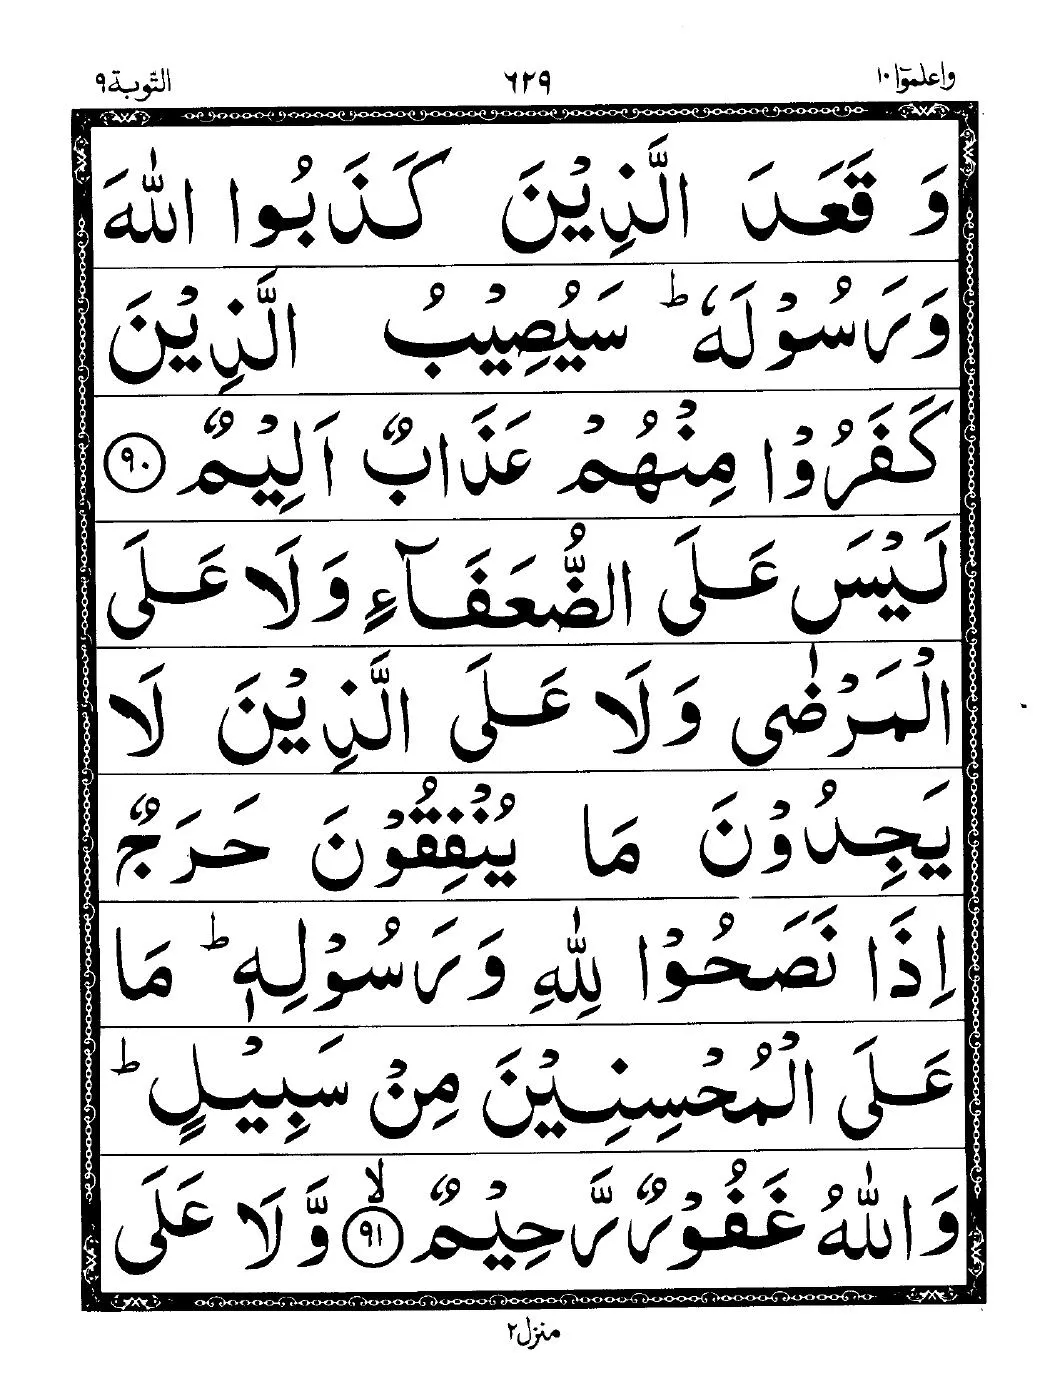 واعلموٓا ١٠ ٦٢٩ التّوبة ٩
وَ قَعَدَ الَّذِيْنَ كَذَبُوا اللّٰهَ
وَ رَسُوْلَهٗ ؕ سَيُصِيْبُ الَّذِيْنَ
كَفَرُوْا مِنْهُمْ عَذَابٌ اَلِيْمٌ ٩٠
لَيْسَ عَلَى الضُّعَفَآءِ وَ لَا عَلَى
الْمَرْضٰى وَ لَا عَلَى الَّذِيْنَ لَا
يَجِدُوْنَ مَا يُنْفِقُوْنَ حَرَجٌ
اِذَا نَصَحُوْا لِلّٰهِ وَ رَسُوْلِهٖ ؕ مَا
عَلَى الْمُحْسِنِيْنَ مِنْ سَبِيْلٍ ؕ
وَ اللّٰهُ غَفُوْرٌ رَّحِيْمٌ ۙ ٩١ وَّ لَا عَلَى
منزل ٢